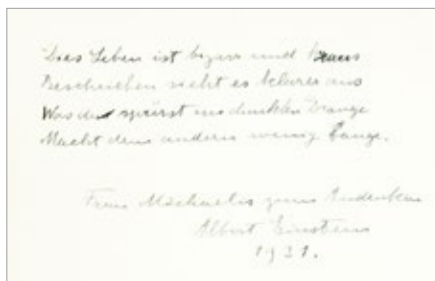 Dies Leben ist bizarr und kraus
Beschrieben sieht es klarer aus
Was du spürst im dunklen Drange
Macht dem andern wenig bange.
Frau Michaelis zum Andenken
Albert Einstein
1931.